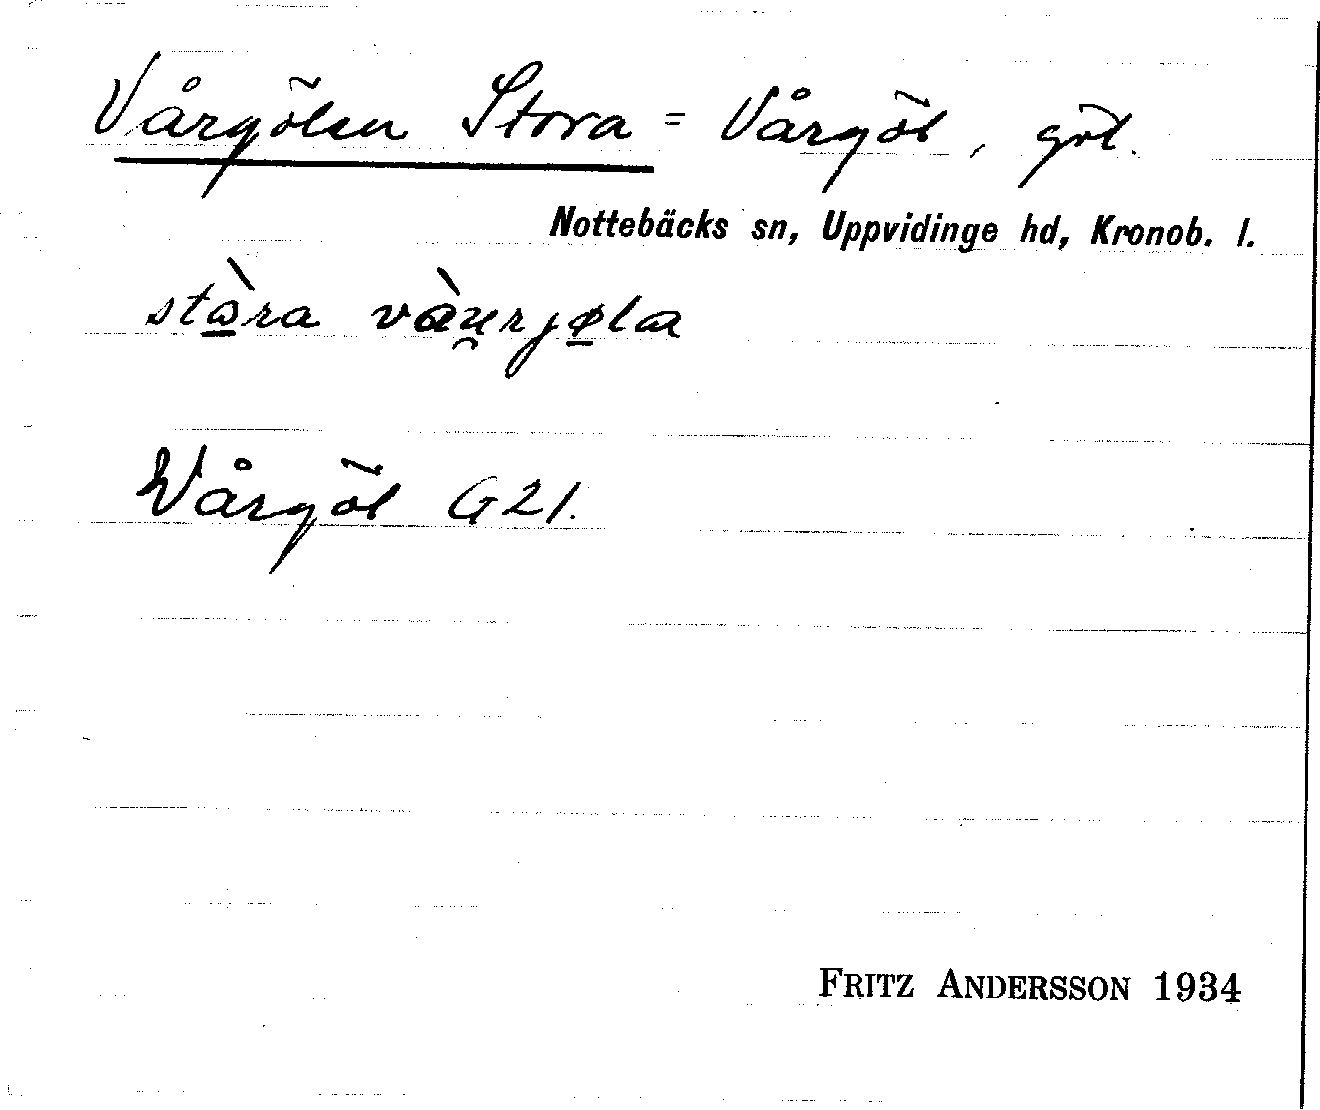 Vårgölen Stora = Vårgöl, göl.
Nottebäcks sn, Uppvidinge hd, Kronob. l.
stàra vàu̯rjøla
Vårgöl G21.
FRITZ ANDERSSON 1934